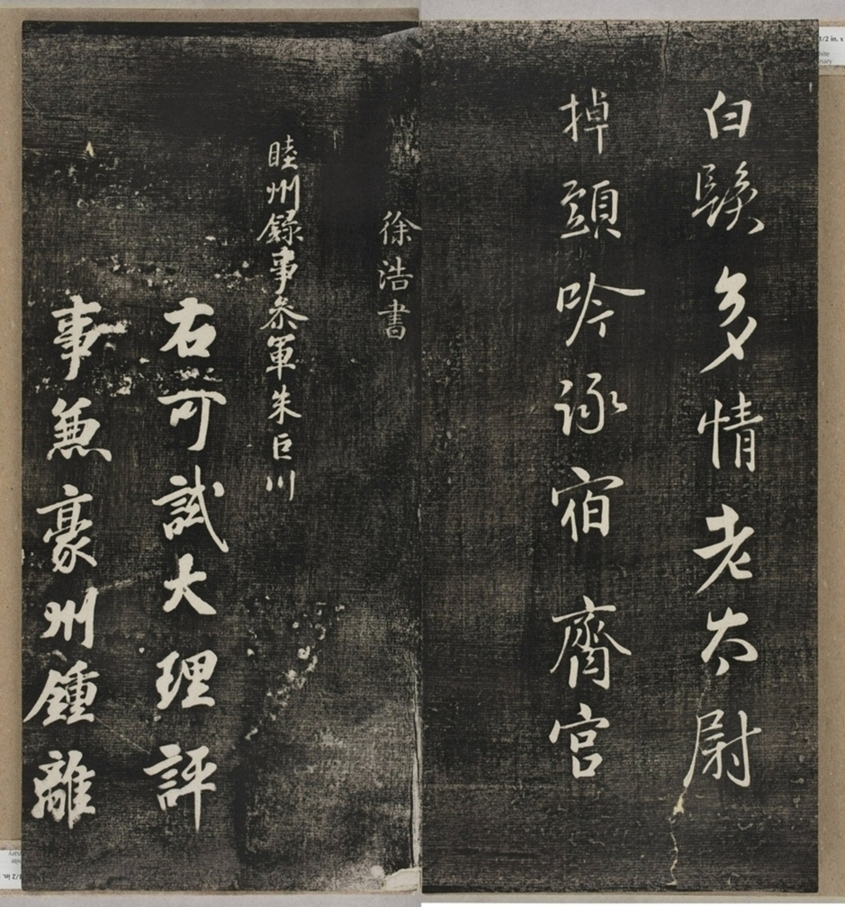 白多情老太尉
掉頭吟詠宿齋官
徐浩書
睦州録事叅軍朱巨川
右可試大理評
事兼豪州鍾離
1/2 in. x